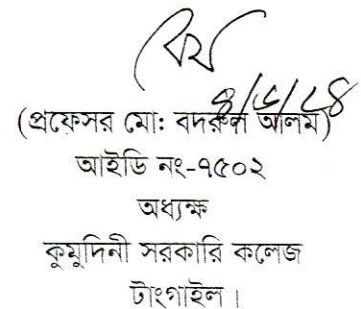 ৪/৬/২৪
(প্রফেসর মো: বদরুল আলম)
আইডি নং-৭৫০২
অধ্যক্ষ
কুমুদিনী সরকারি কলেজ
টাংগাইল।